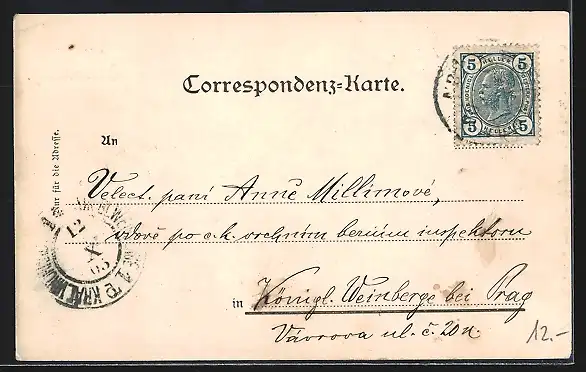 Correspondenz-Karte.
5 HELLER 5
5 HELLER 5
Nur für die Adresse.
An
Velect. paní Anně Millimové,
vdově po c.k. vrchním berním inspektoru
12
X
03
in Königl. Weinberge bei Prag
Vávrova ul. č. 20n.
12.-